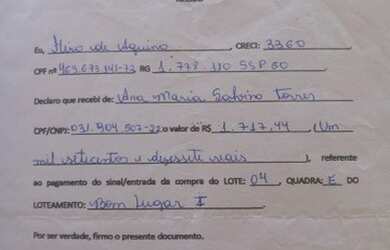 Eu, Hiro de Aquino, CRECI: 3360
CPF nº 463.673.141-72 RG 1.778.110 SSP GO
Declaro que recebi de: Ana Maria Galvino Torres
CPF/CNPJ: 031.804.507-22 o valor de R$ 1.717,44 (Um
mil setecentos e dezessete reais), referente
ao pagamento do sinal/entrada da compra do LOTE: 04, QUADRA: E DO
LOTEAMENTO: Bom Lugar I
Por ser verdade, firmo o presente documento.